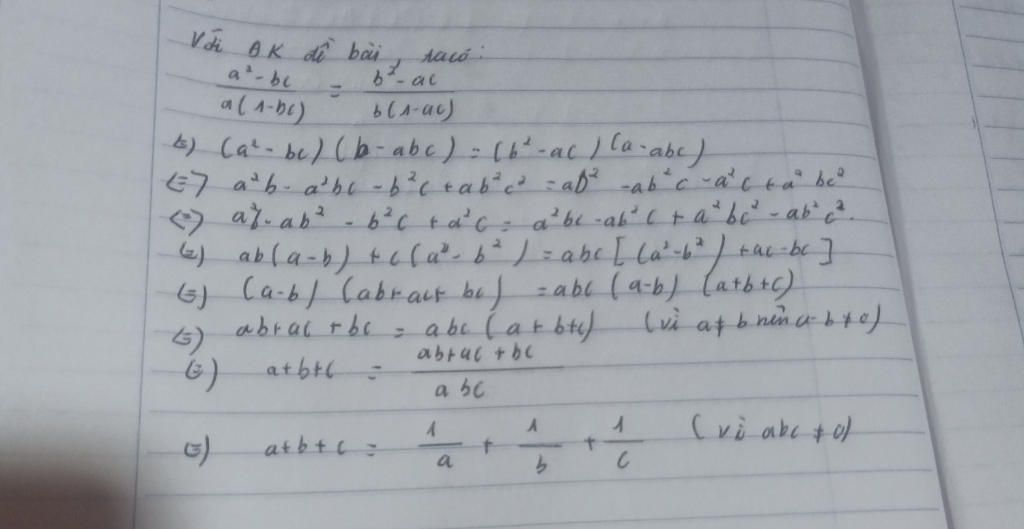 Với ĐK đề bài, ta có:
a² - bc / a(1-bc) = b² - ac / b(1-ac)
⇔) (a² - bc) (b - abc) = (b² - ac) (a - abc)
⇔ a²b - a³bc - b²c + ab²c² = ab² - ab³c - a²c + a²bc²
⇔) a²b - ab² - b²c + a²c = a³bc - ab³c + a²bc² - ab²c².
⇔) ab(a-b) + c(a² - b²) = abc [(a² - b²) + ac - bc]
⇔) (a-b) (ab + ac + bc) = abc (a-b) (a+b+c)
⇔) ab + ac + bc = abc (a + b + c) (vì a ≠ b nên a - b ≠ 0)
⇔) a+b+c = ab + ac + bc / abc
⇔) a + b + c = 1/a + 1/b + 1/c (vì abc ≠ 0)